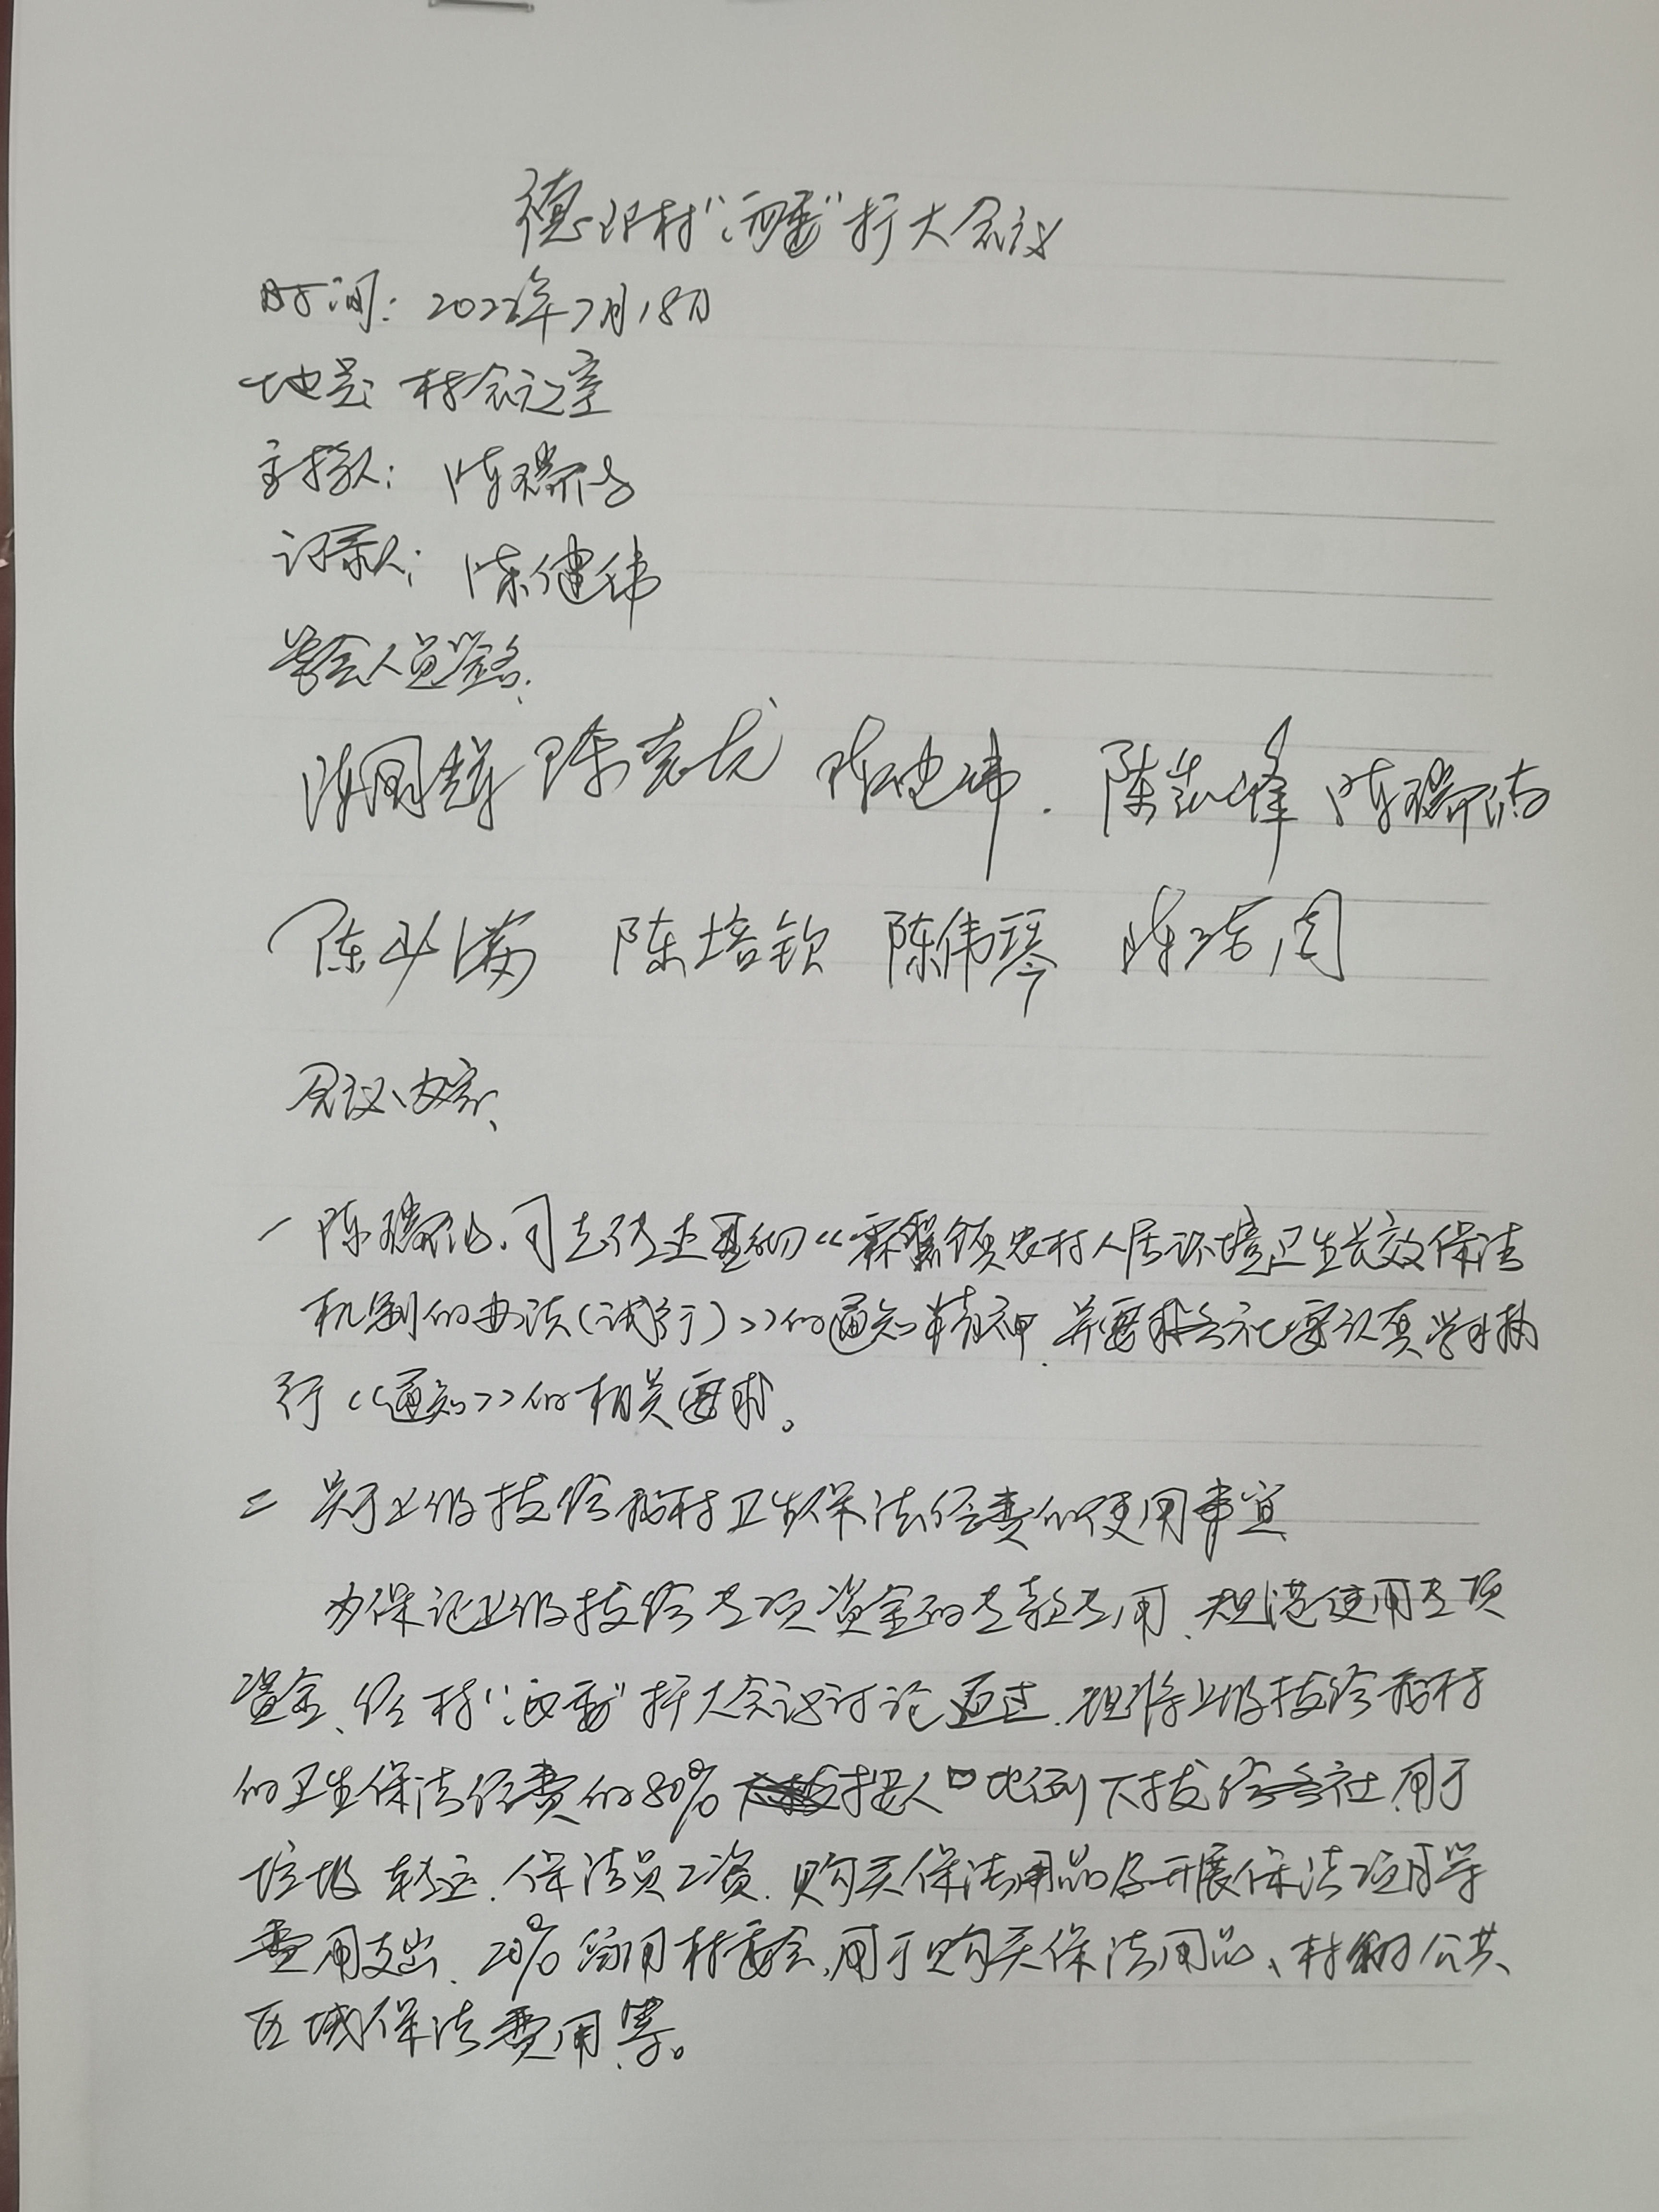 德卫村"两委"扩大会议
时间：2022年7月18日
地点：村会议室
主持人：陈瑞浩
记录人：陈健伟
参会人员签名：
陈克龙 陈健伟. 陈凯峰 陈瑞浩
陈少满 陈培钦 陈伟琴
会议内容、
一 陈瑞浩同志传达霖磐镇农村人居环境卫生长效保洁
机制的办法(试行)>>的通知精神.并要求各社要认真学习执
行<<通知>>的相关要求。
二 关于上级拨给我村卫生保洁经费的使用事宜
为保证上级拨给专项资金的专款专用、规范使用专项
资金、经村"两委"扩大会议讨论通过.现将上级拨给我村
的卫生保洁经费的80%按人口比例下拨给各社.用于
垃圾转运.保洁员工资.购买保洁用品及开展保洁项目等
费用支出、20%留用村委会,用于购买保洁用品、村内公共
区域保洁费用等。